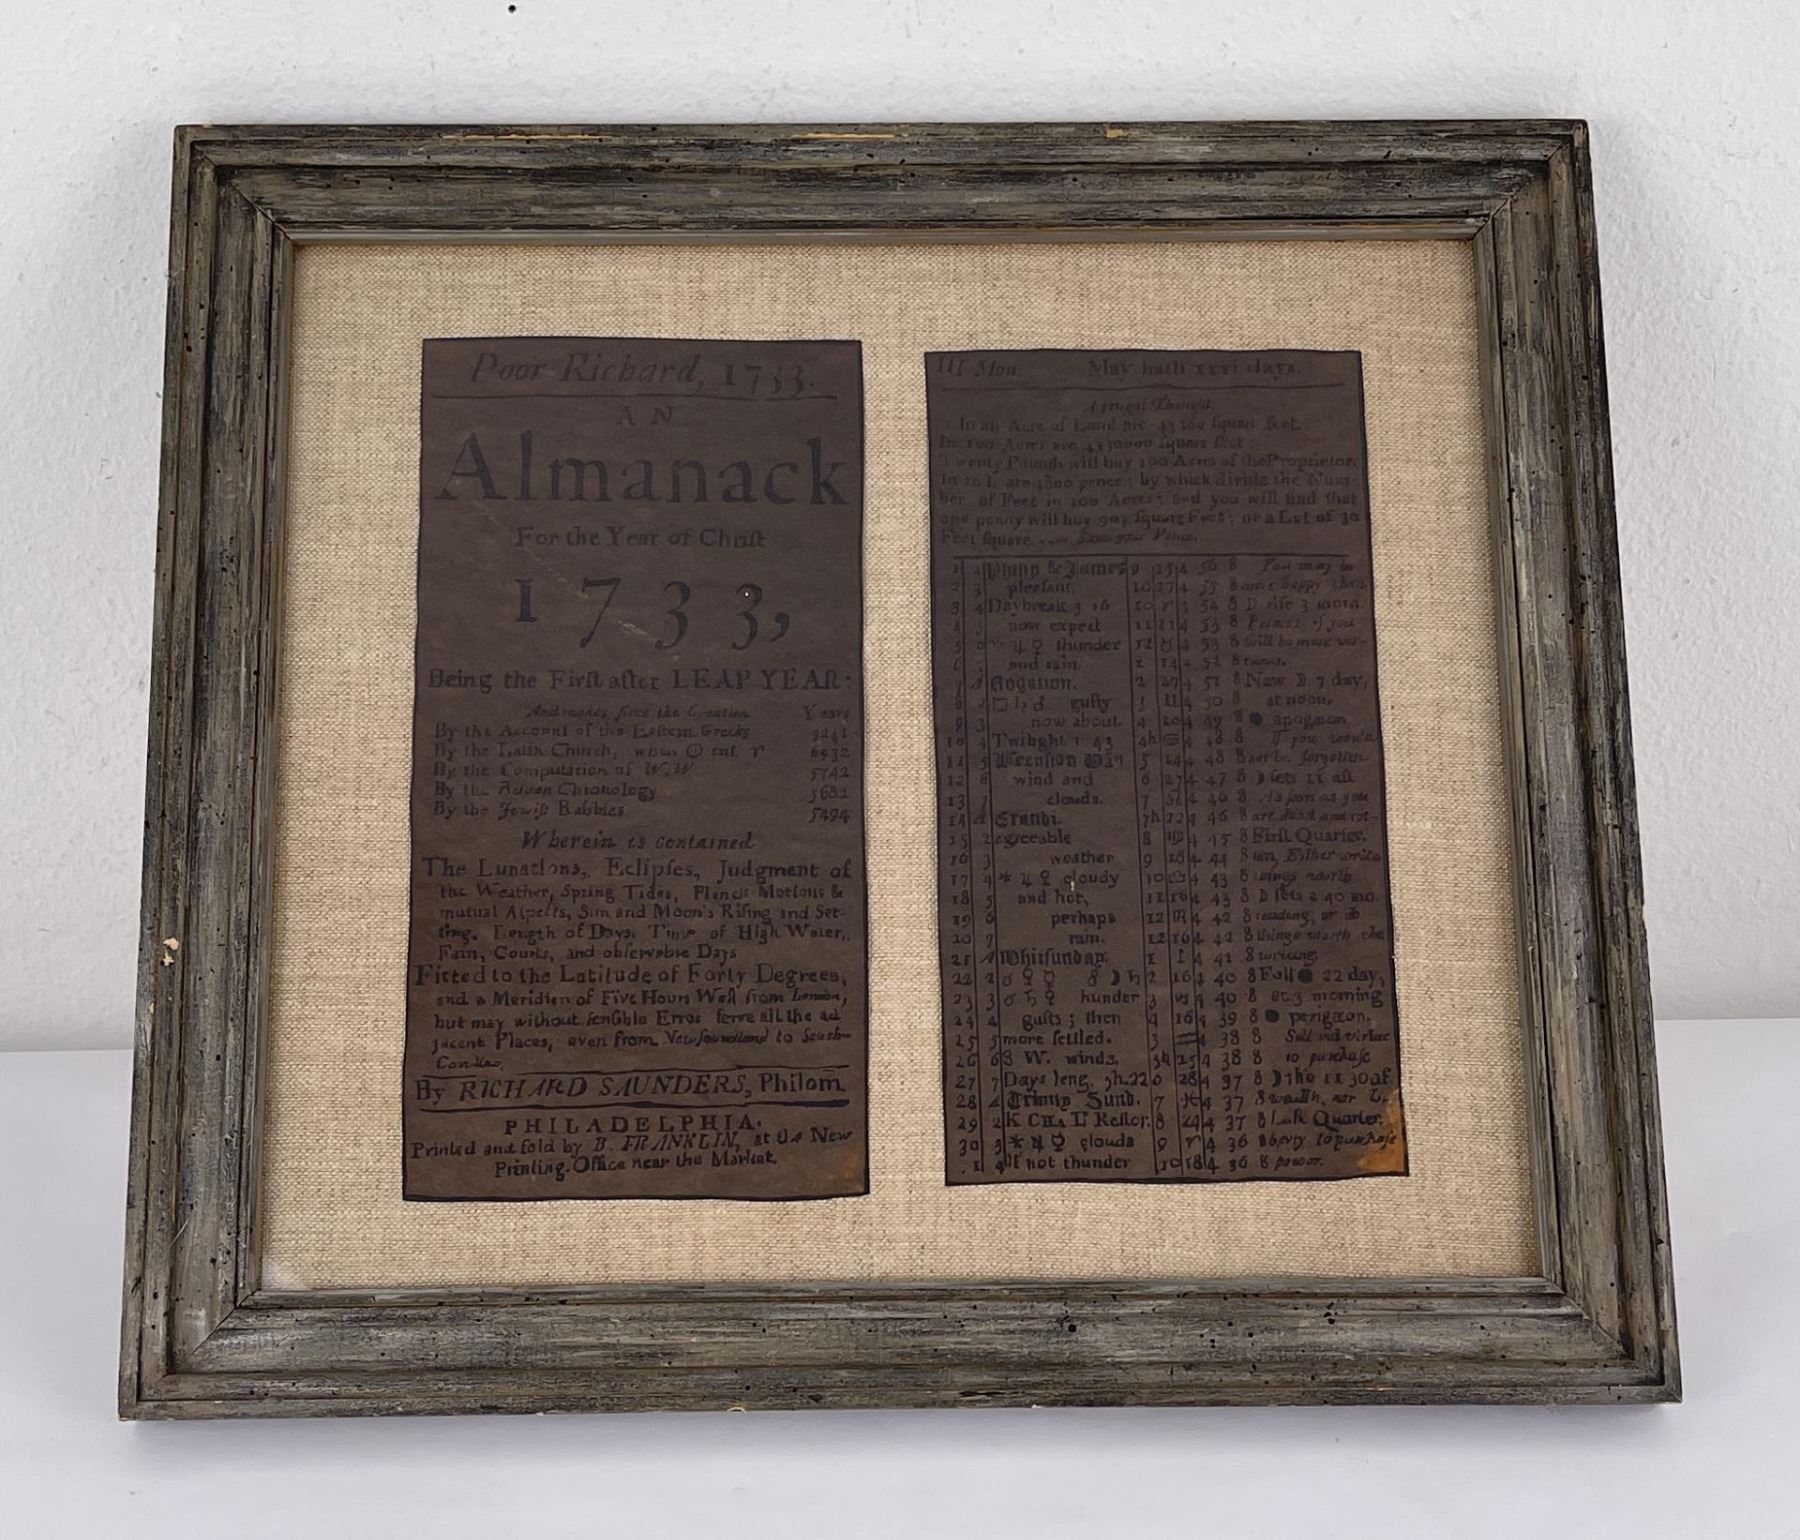 Poor Richard, 1733.
AN
Almanack
For the Year of Christ
1733,
Being the First after LEAP YEAR:
And makes since the Creation Years
By the Account of the Eastern Greeks 7241
By the Latin Church, when ☉ ent. ♈ 6932
By the Computation of W.W 5742
By the Roman Chronology 5682
By the Jewish Rabbies 5494
Wherein is contained
The Lunations, Eclipses, Judgment of
the Weather, Spring Tides, Planets Motions &
mutual Aspects, Sun and Moon's Rising and Set-
ting, Length of Days, Time of High Water,
Fairs, Courts, and observable Days
Fitted to the Latitude of Forty Degrees,
and a Meridian of Five Hours West from London,
but may without sensible Error serve all the ad
jacent Places, even from Newfoundland to South-
By RICHARD SAUNDERS, Philom.
PHILADELPHIA,
Printed and sold by B. FRANKLIN, at the New
Printing-Office near the Market.
III Mon. May hath xxxi days.
A frugal Thought.
In an Acre of Land are 43560 square feet,
In 100 Acres are 4356000 square feet
Twenty Pounds will buy 100 Acres of the Proprietor.
In 20 L. are 4800 pence; by which divide the Num-
ber of Feet in 100 Acres; and you will find that
one penny will buy 907 square Feet; or a Lot of 30
Feet square. — Save your Pence.
1 2 Philip & James 9 15 4 56 8 You may be
2 3 pleasant, 10 27 4 55 8 more happy than
3 4 Daybreak 3 16 10 54 8 ☽ rise 3 morn.
4 5 now expect 11 21 4 53 8 Princes, if you
5 6 ♃ ♀ thunder 12 ♉ 4 53 8 will be more vir-
6 7 and rain. 1 14 4 52 8 tuous.
7 Rogation. 2 27 4 51 8 New ☽ 7 day,
8 2 □ ♄ ♂ gusty 3 ♊ 4 50 8 at noon.
9 3 now about 4 20 4 49 8 ● apogæon
10 4 Twilight 1 43 4h ♋ 4 48 8 If you would
11 5 Ascension Day 5 14 4 48 8 not be forgotten
12 6 wind and 6 27 4 47 8 ☽ sets 11 aft
13 7 clouds. 7 ♌ 4 46 8 As soon as you
14 Exaudi. 7h 22 4 46 8 are dead and rot-
15 2 agreeable 8 ♍ 4 45 8 First Quarter.
16 3 weather 9 18 4 44 8 ten, Either write
17 4 * ♃ ♀ cloudy 10 ♎ 4 43 8 things worth
18 5 and hot, 11 16 4 43 8 ☽ sets 2 40 mo.
19 6 perhaps 12 ♏ 4 42 8 reading, or do
20 7 rain. 12 16 4 42 8 things worth the
21 Whitsunday. 1 4 41 8 writing.
22 2 ☌ ♀ ☿ ☍ ☽ ♄ 2 16 4 40 8 Full ● 22 day,
23 3 ☌ ♄ ♀ hunder 3 ♑ 4 40 8 at 3 morning
24 4 gusts; then 4 16 4 39 8 ● perigæon.
25 5 more settled. 5 ♒ 4 38 8 Sell not virtue
26 6 S W. winds. 5h 25 4 38 8 to purchase
27 7 Days long. 14h.22 6 28 4 37 8 ☽ rise 11 30 af.
28 Trinity Sund. 7 ♓ 4 37 8 wealth, nor Li
29 2 K CHA II Restor. 8 24 4 37 8 Last Quarter.
30 3 * ♃ ☿ clouds 9 ♈ 4 36 8 berty to purchase
1 4 If not thunder 10 18 4 36 8 power.